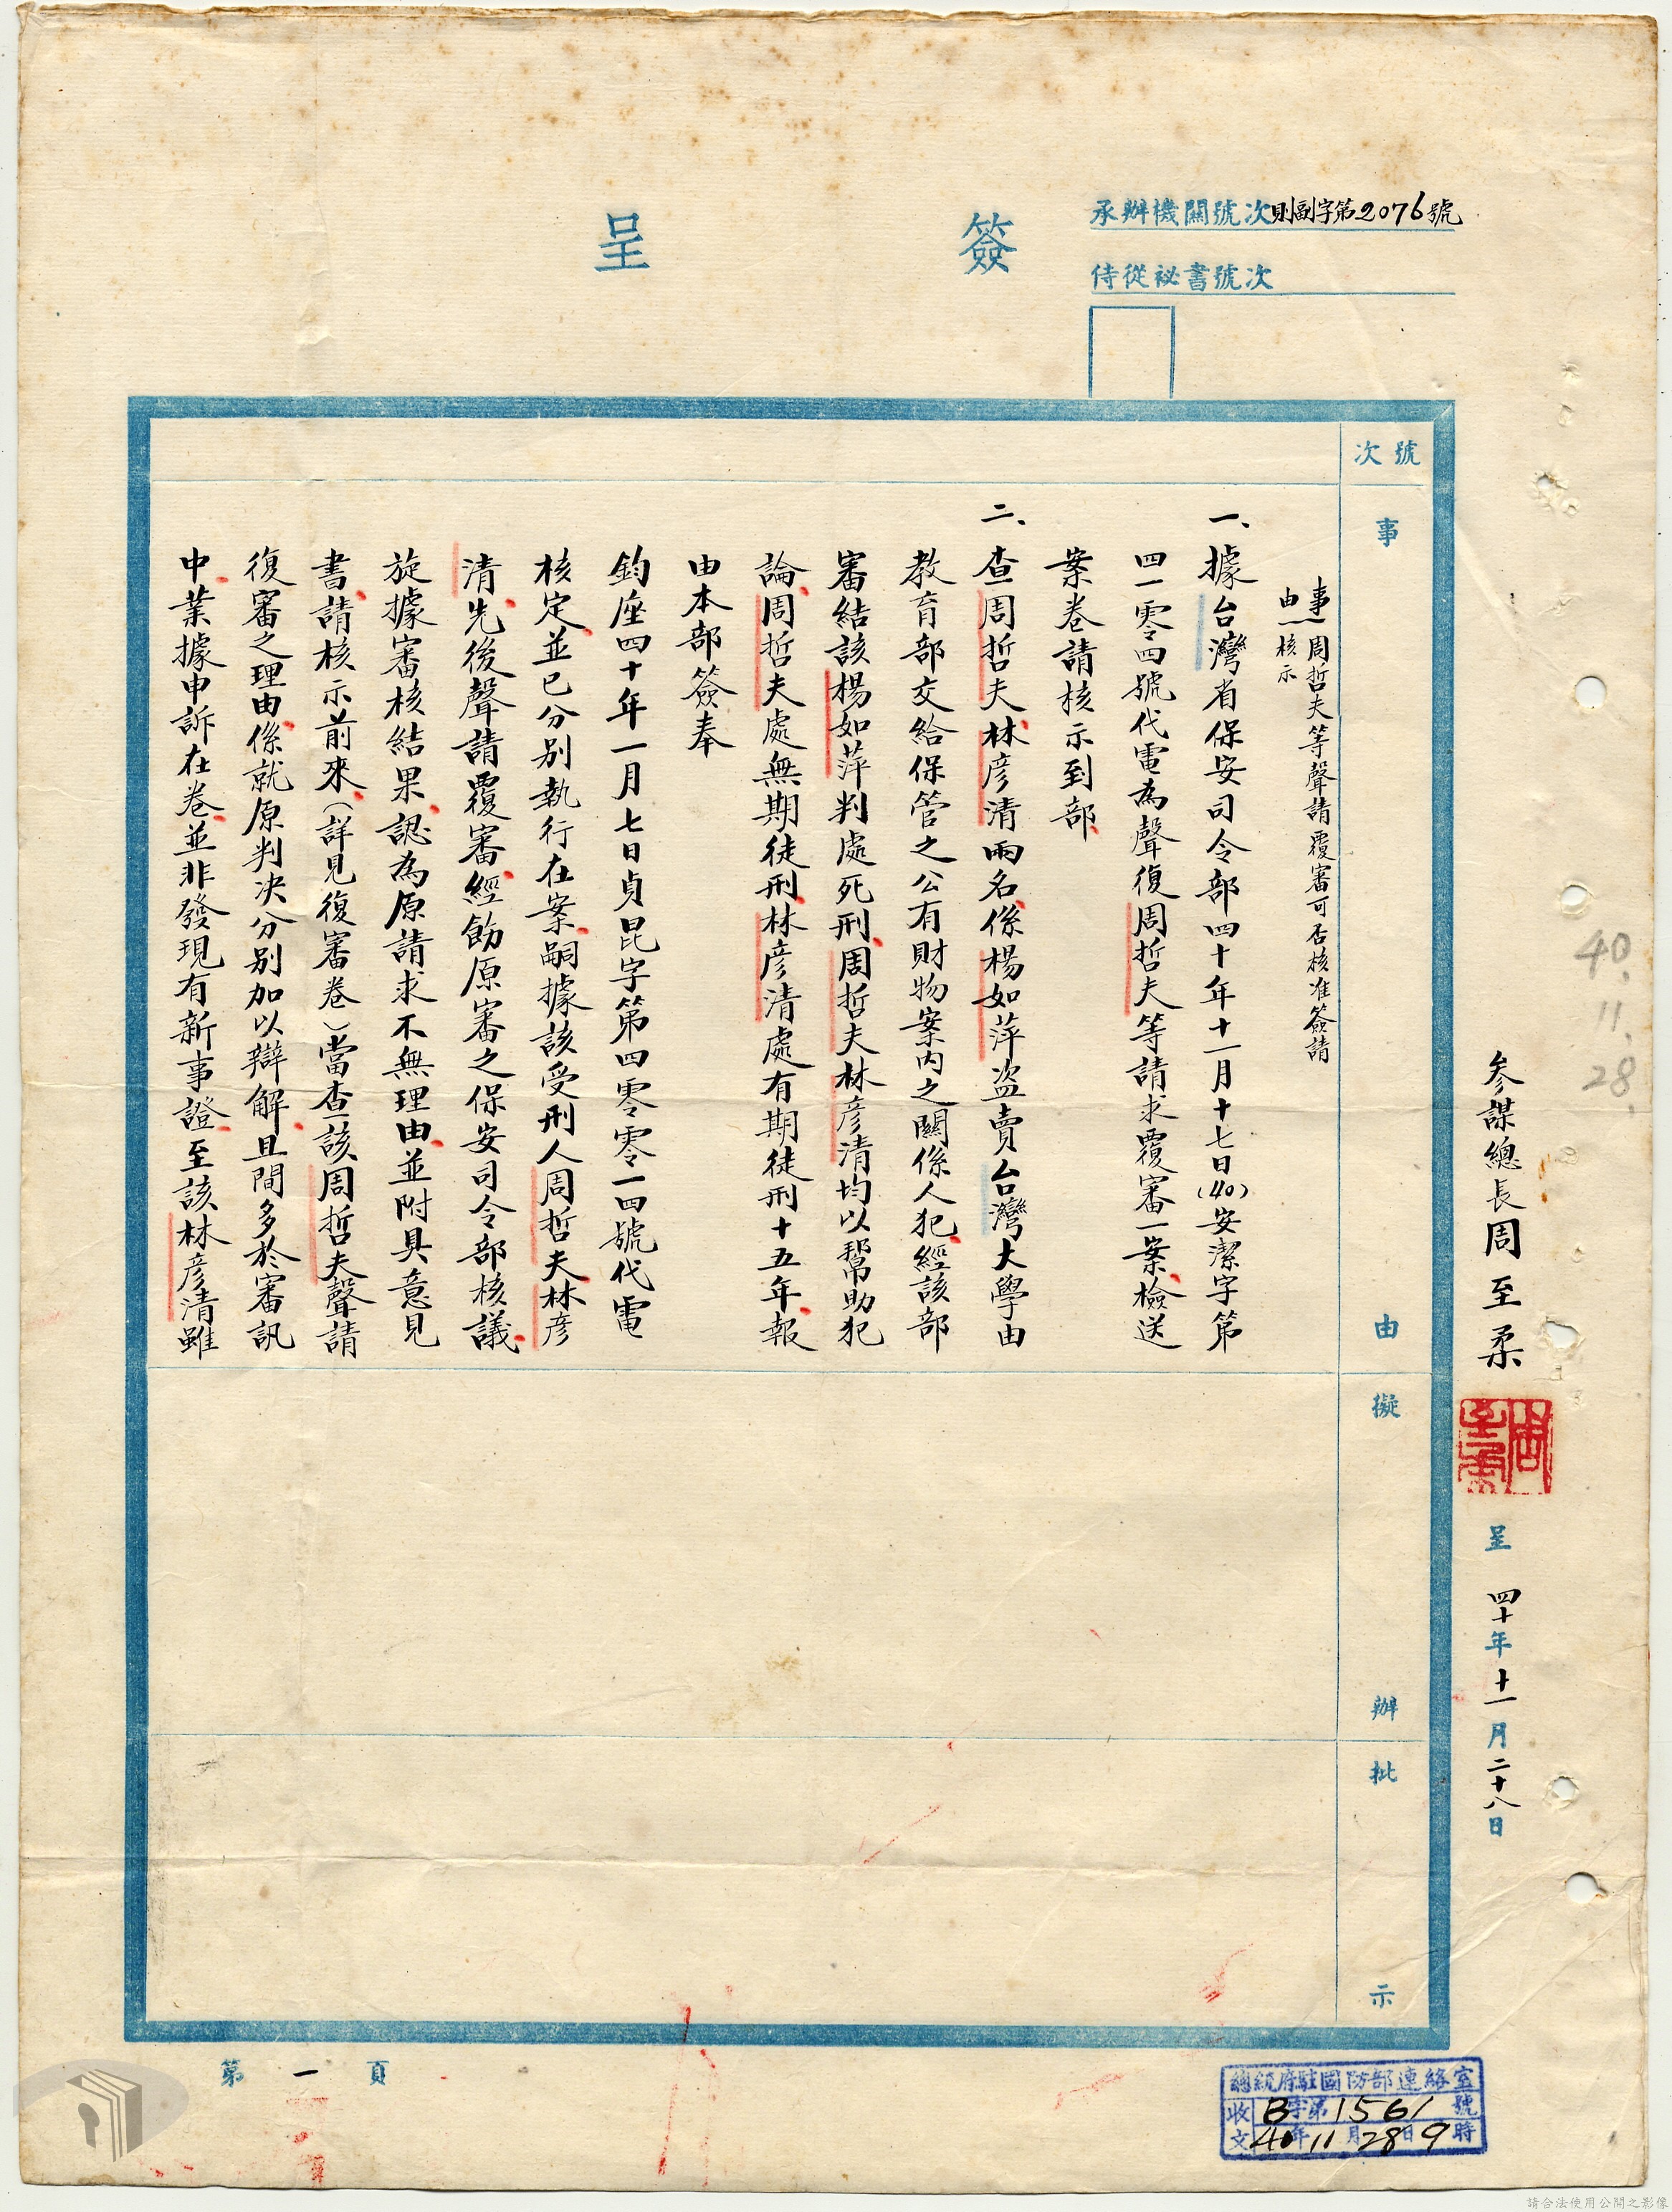 簽呈
承辦機關號次則副字第2076號
侍從祕書號次
號次
事由
擬辦
批示
參謀總長周至柔
周至柔
呈 四十年十一月二十八日
40.11.28.
事由 周哲夫等聲請覆審可否核准簽請
核示
一、據台灣省保安司令部四十年十一月十七日(40)安潔字第
四一零四號代電為聲復周哲夫等請求覆審一案檢送
案卷請核示到部
二、查周哲夫林彦清兩名係楊如萍盗賣台灣大學由
教育部交給保管之公有財物案内之關係人犯經該部
審結該楊如萍判處死刑周哲夫林彦清均以幫助犯
論周哲夫處無期徒刑林彦清處有期徒刑十五年報
由本部簽奉
鈞座四十年一月七日貞昆字第四零零一四號代電
核定並已分別執行在案嗣據該受刑人周哲夫林彦
清先後聲請覆審經飭原審之保安司令部核議
旋據審核結果認為原請求不無理由並附具意見
書請核示前來(詳見復審卷)當查該周哲夫聲請
復審之理由係就原判决分別加以辯解且間多於審訊
中業據申訴在卷並非發現有新事證至該林彦清雖
第一頁
總統府駐國防部連絡室
收文 B字第1561號
40年11月28日9時
請合法使用公開之影像